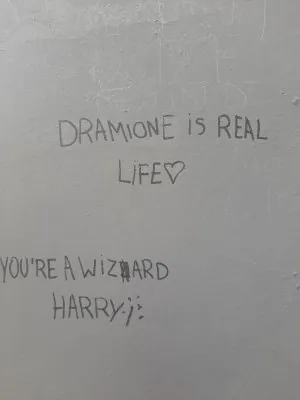 DRAMIONE is REAL
LiFE♡
YOU'RE A WiZARD
HARRY